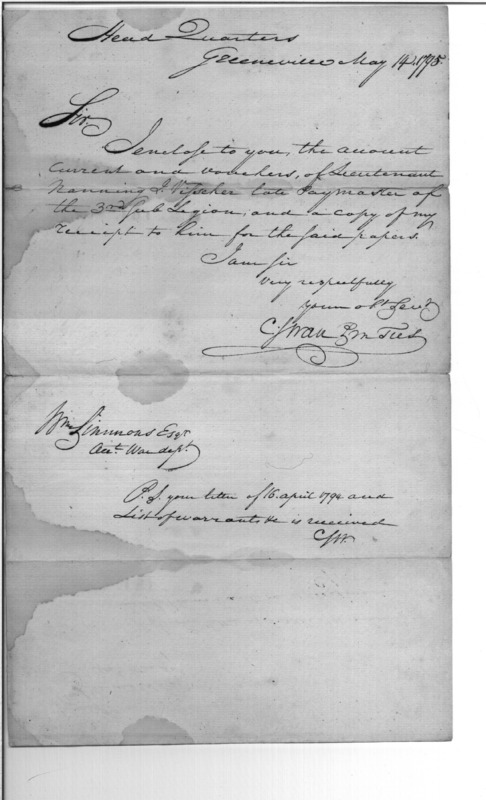 Head Quarters
Greeneville May 14. 1795.
Sir
I enclose to you, the account
current and vouchers, of Lieutenant
Nanning J. Vischer late Paymaster of
the 3rd Sub Legion, and a copy of my
receipt to him for the said papers.
I am Sir
very respectfully
your obt. Servt.
C Swan P M
Wm Simmons Esqr.
Acct. War dept.
P.S. your letter of 16. april 1794 and
List of warrants &c is received
CSw.